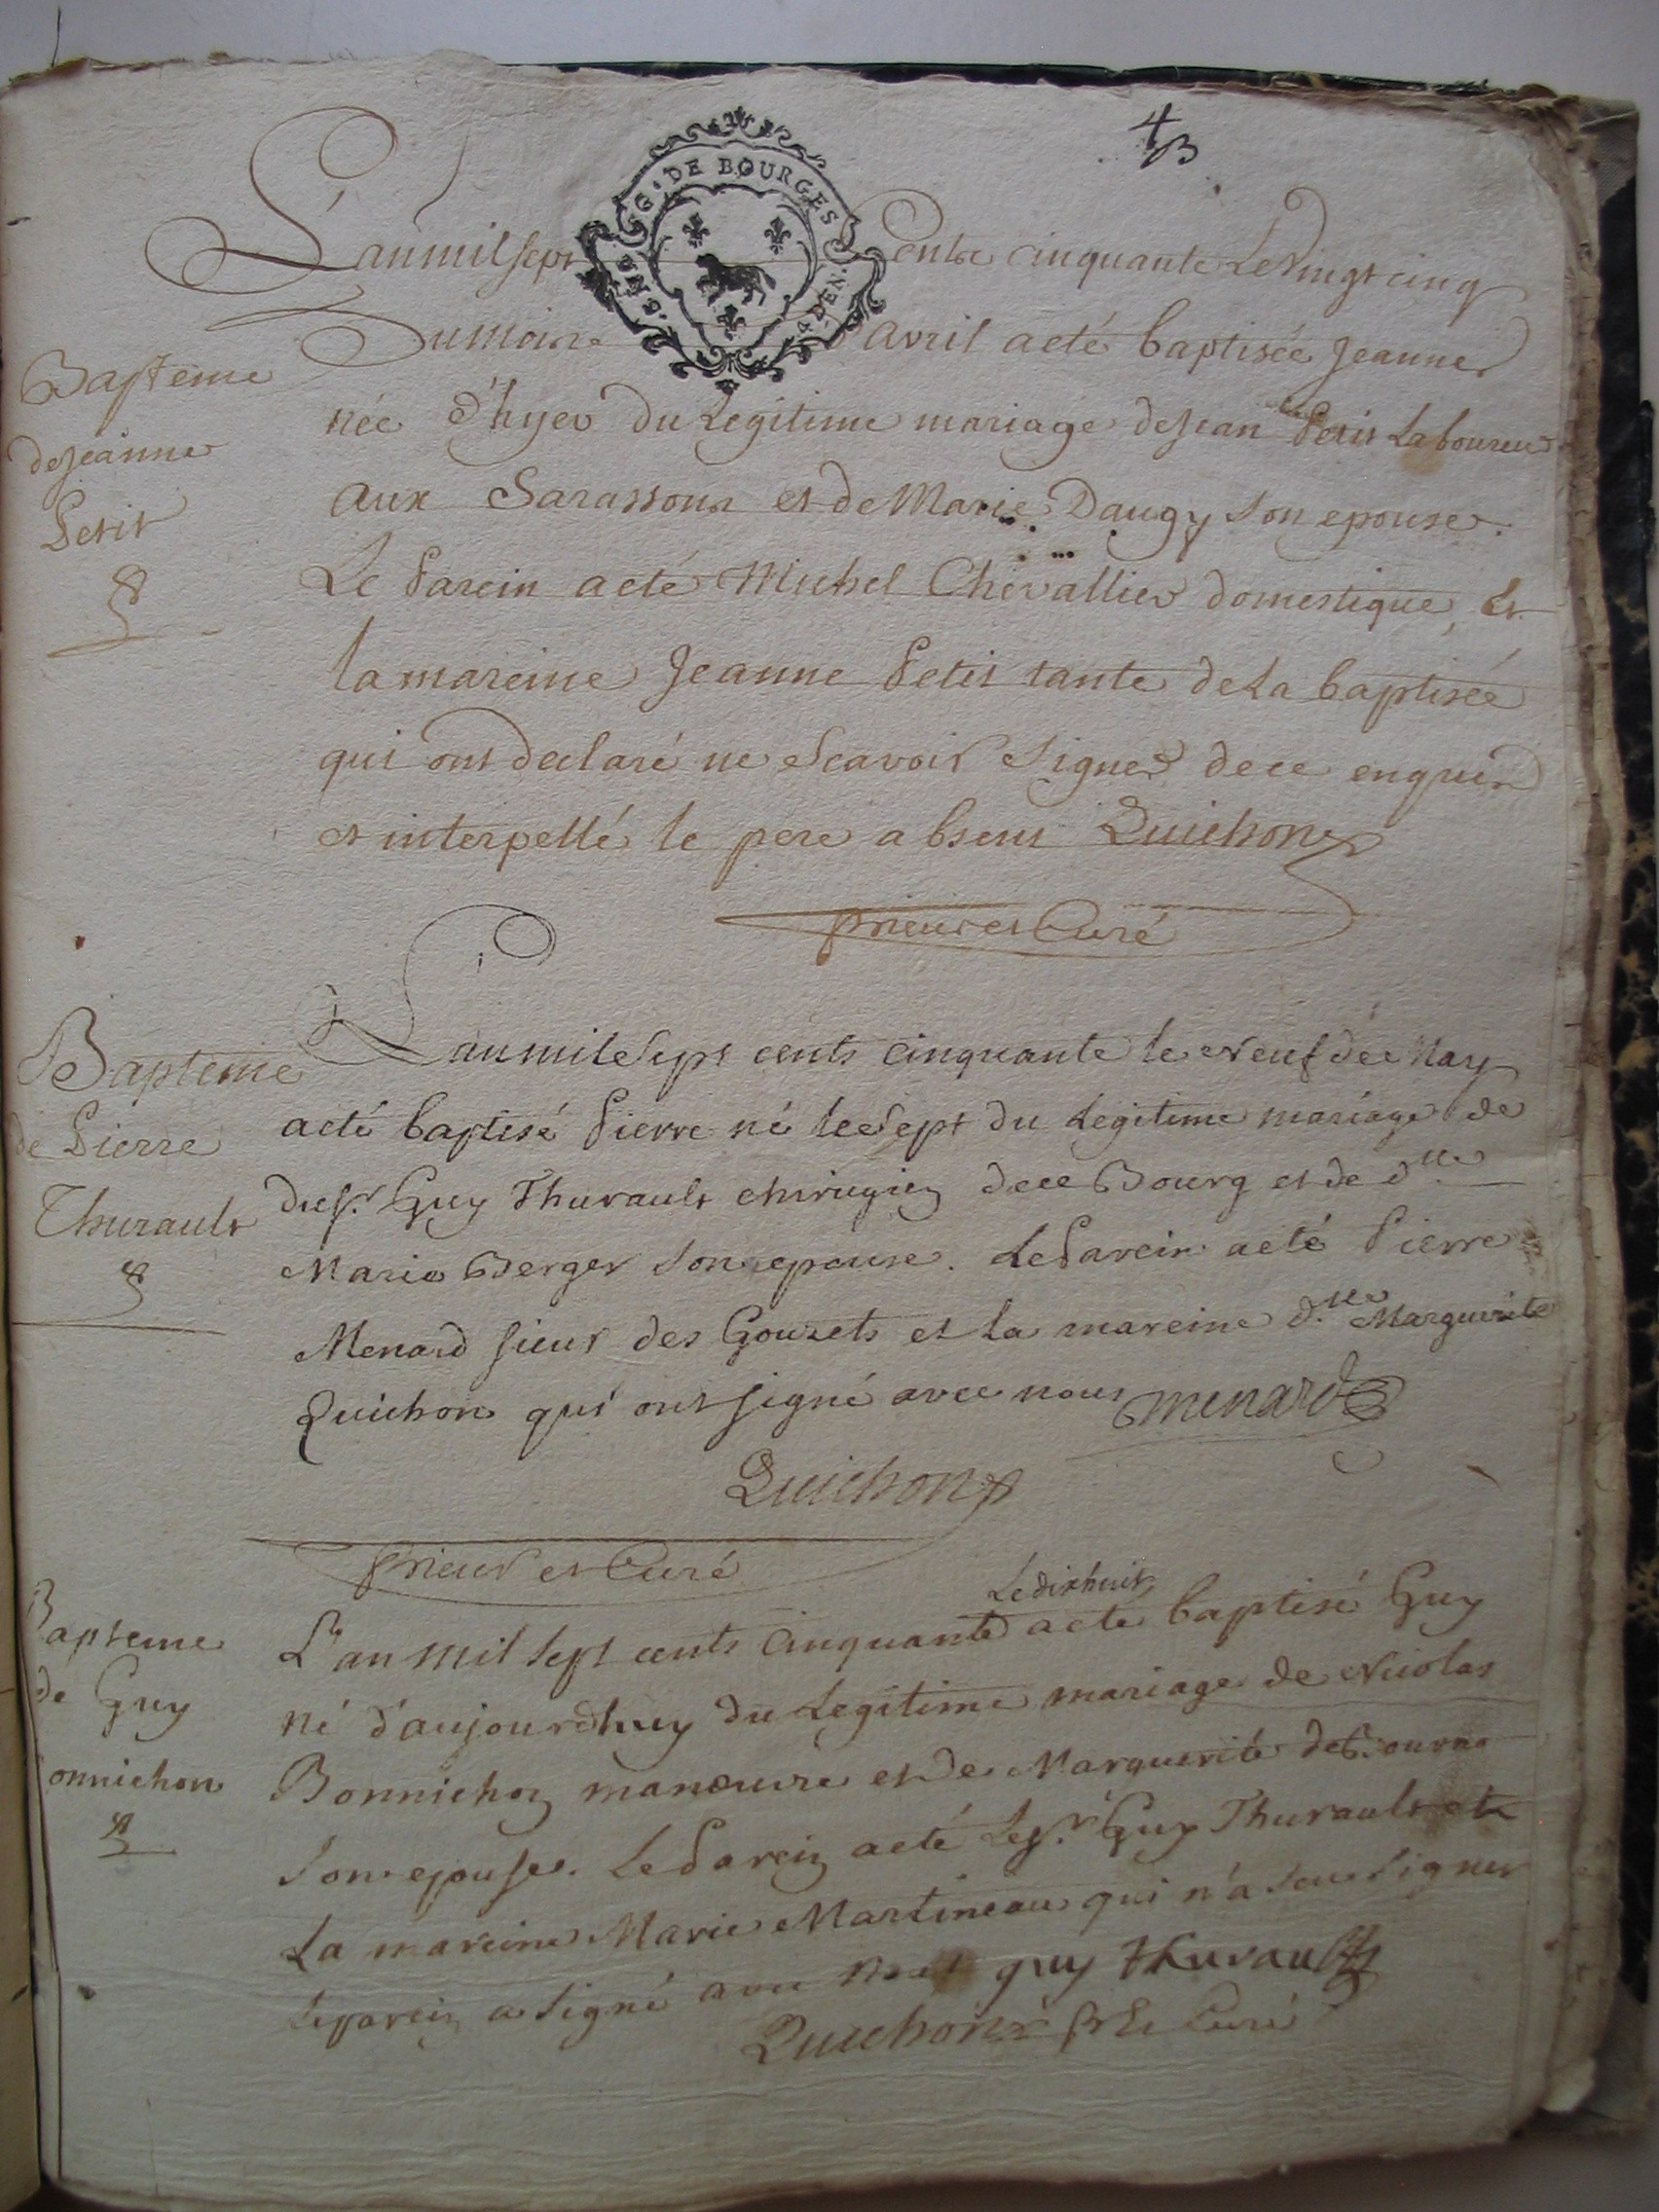 4
B
GEN. DE BOURGES
4 DEN.
L'an mil sept Cents cinquante Le Vingt cinq
Du mois d'avril a eté baptisée Jeanne
née d'hyer du Legitime mariage de Jean Petit Laboureur
aux Sarassons et de Marie Daugy Son epouse.
Le Parein a eté Michel Chevallier domestique, et
la mareine Jeanne Petit tante de La baptisée
qui ont declaré ne Scavoir Signer de ce enquis
et interpellé le pere absent Quichon
prieur et Curé
Bapteme
de Jeanne
Petit
L'an mil Sept cents cinquante le Neuf de May
a eté baptisé Pierre né le Sept du Legitime mariage de
du Sr. Guy Thurault chirugien de ce Bourg et de dlle.
Marie Berger Son epouse. Le Parein a eté Pierre
Menard sieur des Gouzets et la mareine dlle. Marguerite
Quichon qui ont signé avec nous menard
Quichon
prieur et Curé
Bapteme
de Pierre
Thurault
Le dix huit
L'an mil sept cents cinquante a eté baptisé Guy
né d'aujourdhuy du Legitime mariage de Nicolas
Bonnichon manœuvre et de Marguerite
Son epouse. Le Parein a eté Le Sr. Guy Thurault et
La mareine Marie Martineau qui n'a Seu Signer
Le parein a Signé avec nous guy thurault
Quichon Pr Et Curé
Bapteme
de Guy
onnichon